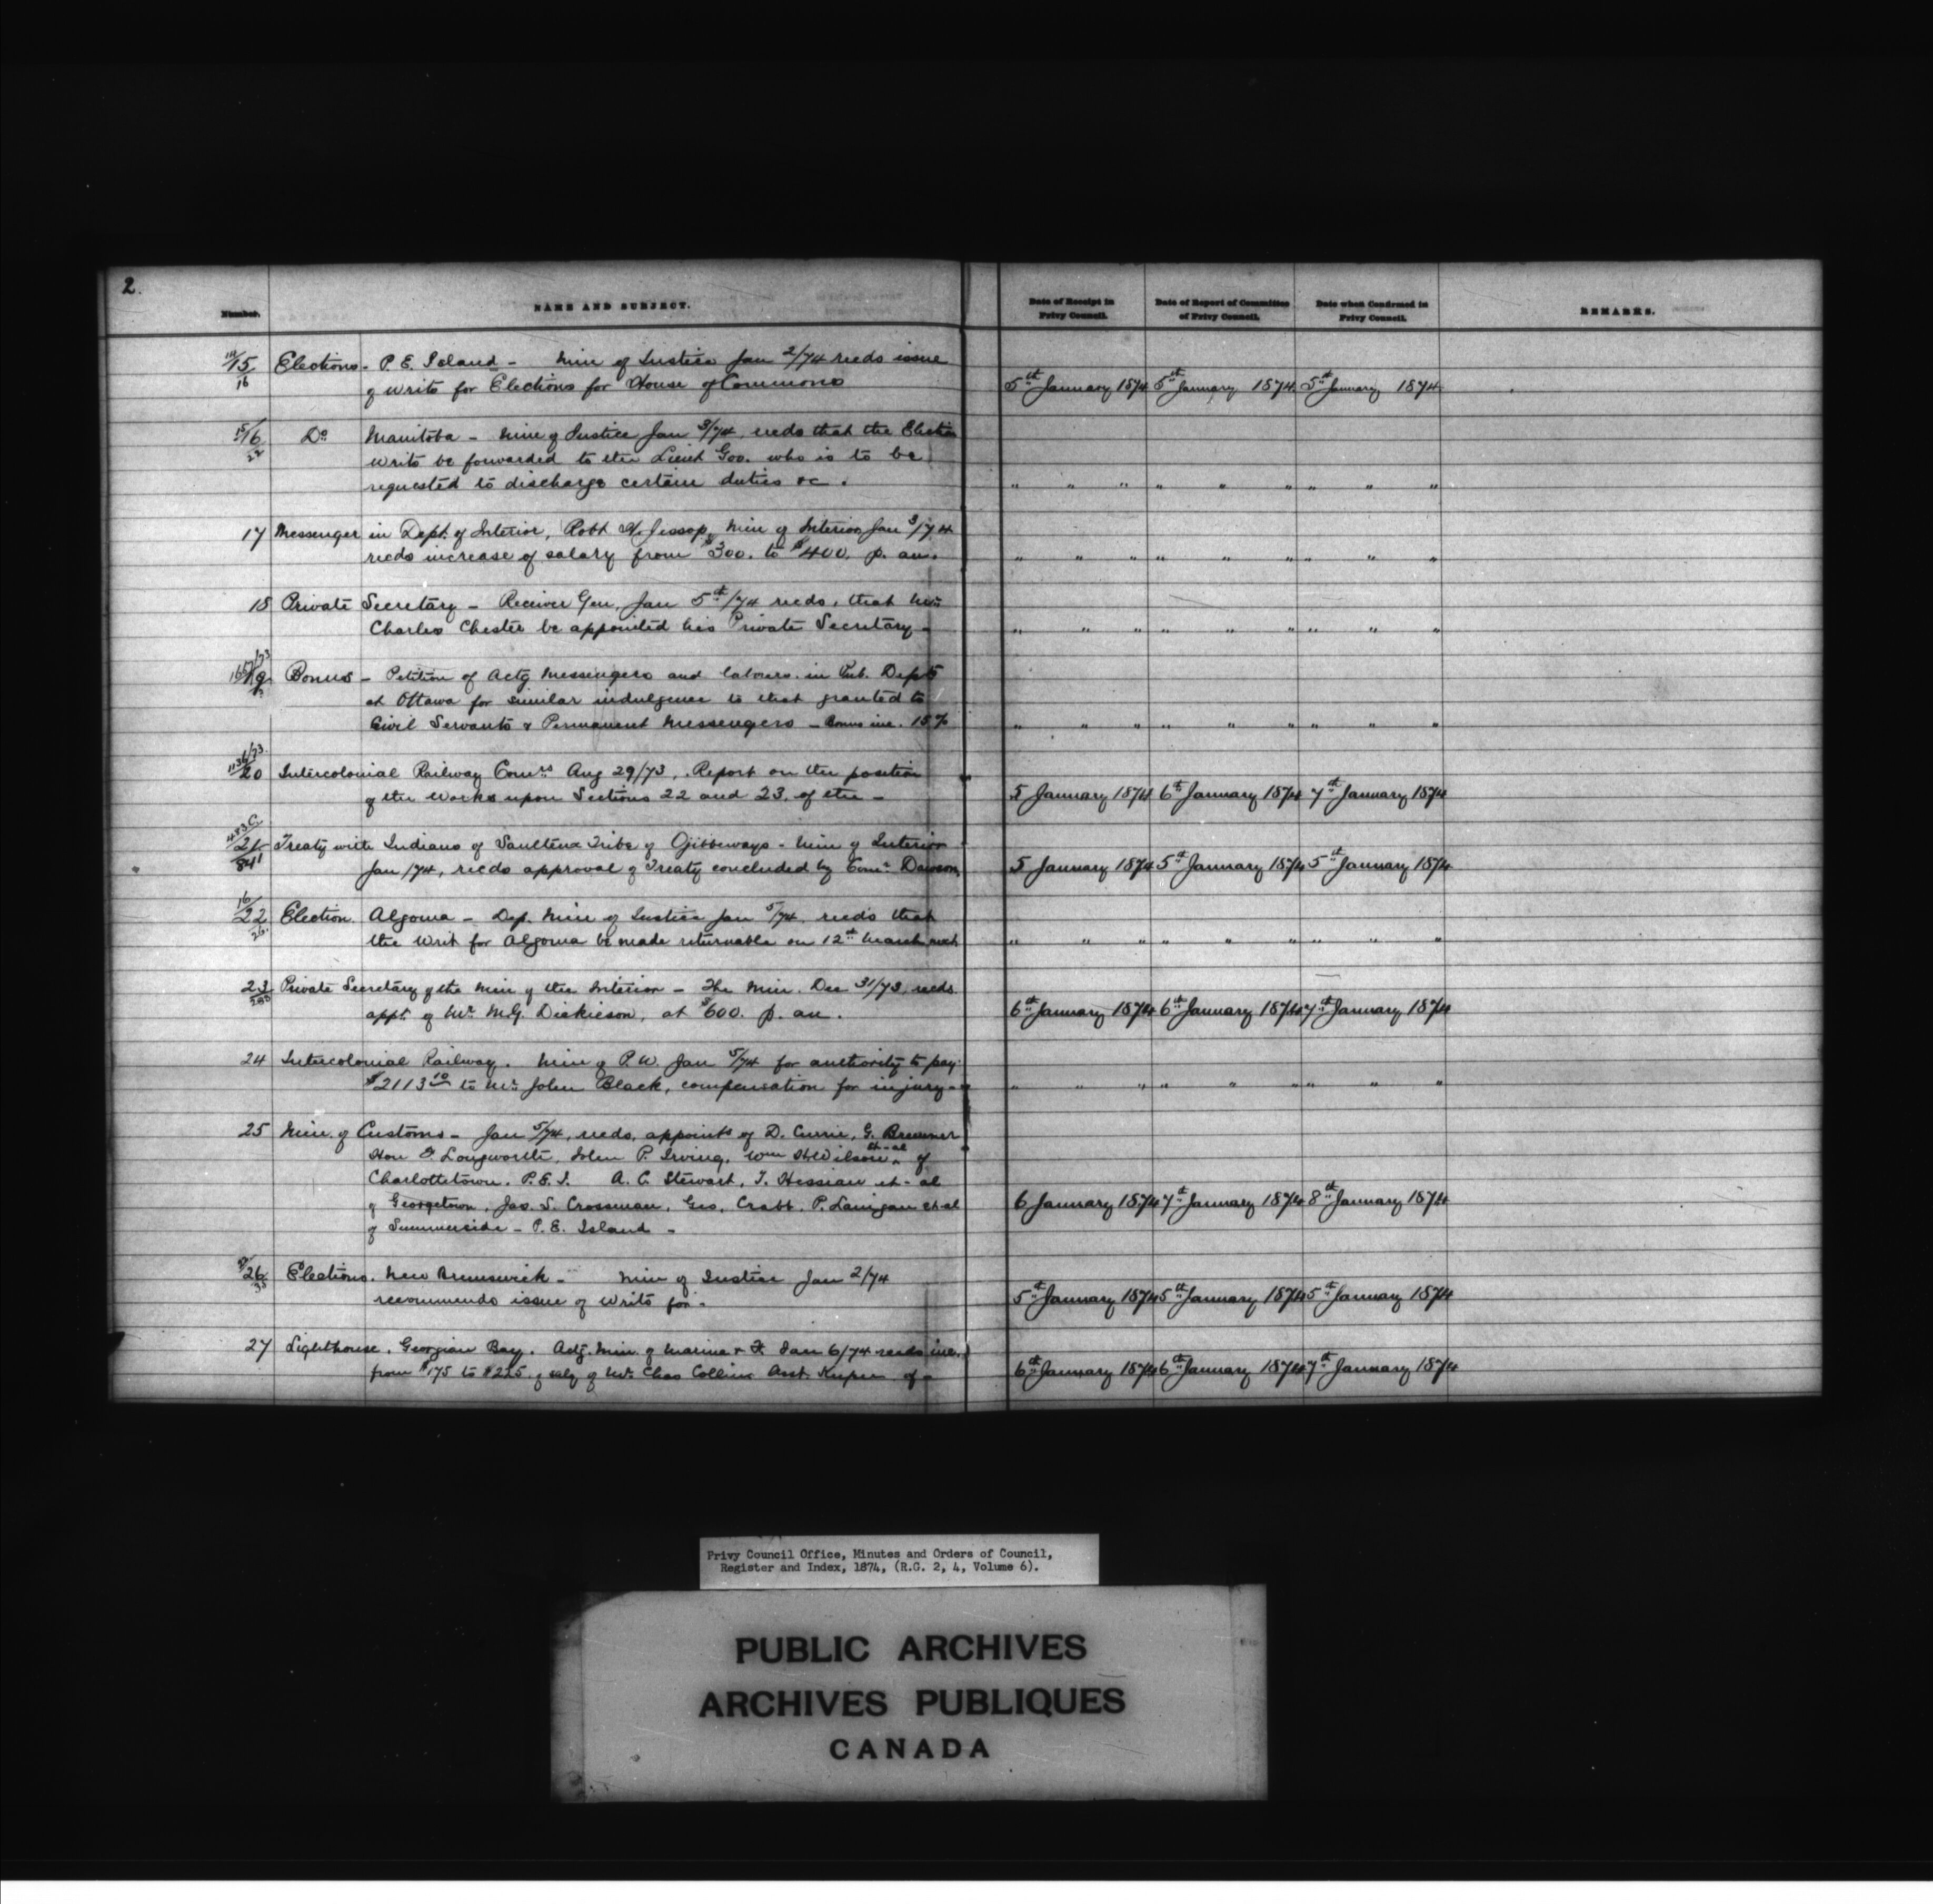 2.
Number. NAME AND SUBJECT. Date of Receipt in Privy Council. Date of Report of Committee of Privy Council. Date when Confirmed in Privy Council. REMARKS.
14/15/16 Elections - P. E. Island - Min of Justice Jan 2/74 recds issue
of writs for Elections for House of Commons 5th January 1874 5th January 1874 5th January 1874
15/16/22 Do Manitoba - Min of Justice Jan 3/74, recds that the Election
writs be forwarded to the Lieut Gov. who is to be
requested to discharge certain duties &c. " " " " " " " " "
17 Messenger in Dept. of Interior, Robt W. Jessop, Min of Interior Jan 3/74
recds increase of salary from $300. to $400. p. an. " " " " " " " " "
18 Private Secretary - Receiver Gen, Jan 5th/74 recds, that Mr
Charles Chester be appointed his Private Secretary - " " " " " " " " "
19 Bonus - Petition of Actg Messengers and labours. in Pub. Depts
at Ottawa for similar indulgence to that granted to
Civil Servants & Permanent Messengers - Bonus inc. 15% " " " " " " " " "
20 Intercolonial Railway Comrs Aug 29/73, Report on the position
of the works upon Sections 22 and 23. of the - 5 January 1874 6th January 1874 7th January 1874
483C/21/841 Treaty with Indians of Saulteux Tribe of Ojibbeways - Min of Interior
Jan /74, recds approval of Treaty concluded by Comr Dawson, 5 January 1874 5th January 1874 5th January 1874
16/22/26 Election. Algoma - Dep. Min of Justice Jan 5/74 recds that
the Writ for Algoma be made returnable on 12th March next " " " " " " " " "
23 Private Secretary of the Min of the Interior - The Min. Dec 31/73, recds
appt. of Mr M.G. Dickieson, at $600. p. an. 6th January 1874 6th January 1874 7th January 1874
24 Intercolonial Railway. Min of P.W. Jan 5/74 for authority to pay
$2113 10 to Mr John Black, compensation for injury - " " " " " " " " "
25 Min. of Customs - Jan 5/74, recds, appoints of D. Currie, G. Bremner
Hon F. Longworth, John P. Irving, Wm H. Wilson et-al of
Charlottetown. P.E.I. A. C. Stewart, T. Hessian et-al
of Georgetown, Jas. S. Crossman, Geo. Crabb, P. Lanigan et-al 6 January 1874 7th January 1874 8th January 1874
of Summerside - P. E. Island -
26 Elections. New Brunswick - Min of Justice Jan 2/74
recommends issue of writs for - 5th January 1874 5th January 1874 5th January 1874
27 Lighthouse, Georgian Bay. Actg. Min. of Marine & F. Jan 6/74 recds inc.
from $175 to $225. of saly of Mr Chas Collins Asst. Keeper of - 6th January 1874 6th January 1874 7th January 1874
Privy Council Office, Minutes and Orders of Council,
Register and Index, 1874, (R.G. 2, 4, Volume 6).
PUBLIC ARCHIVES
ARCHIVES PUBLIQUES
CANADA